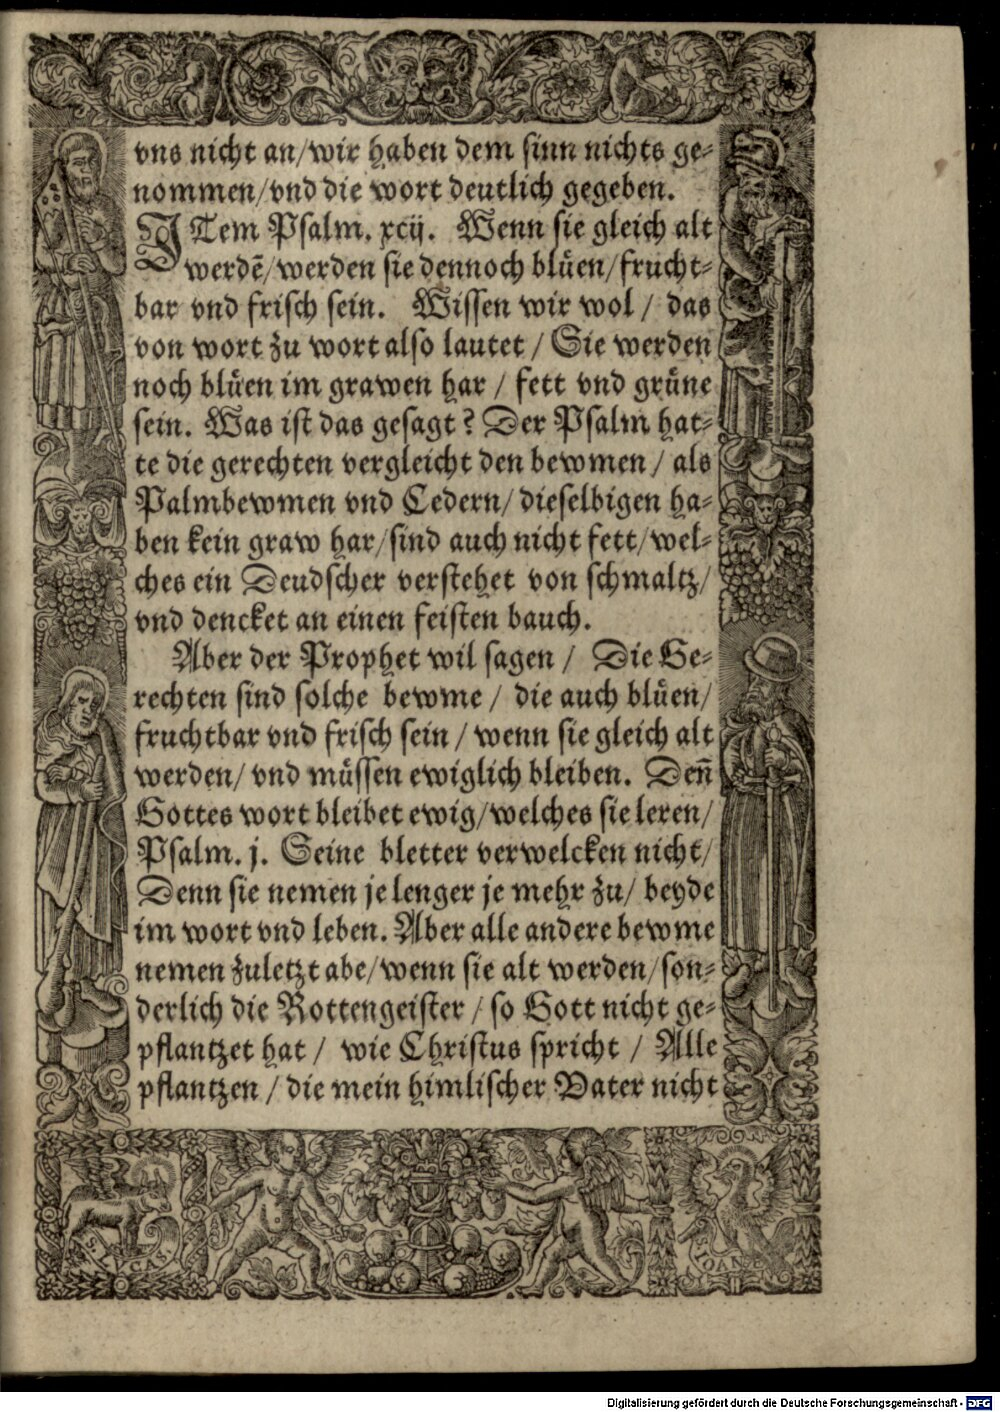 vns nicht an/wir haben dem sinn nichts ge⸗
nommen/vnd die wort deutlich gegeben.
JTem Psalm. xcij. Wenn sie gleich alt
werdē/werden sie dennoch blüen/frucht⸗
bar vnd frisch sein. Wissen wir wol / das
von wort zu wort also lautet / Sie werden
noch blüen im grawen har / fett vnd grüne
sein. Was ist das gesagt? Der Psalm hat⸗
te die gerechten vergleicht den bewmen / als
Palmbewmen vnd Cedern/ dieselbigen ha⸗
ben kein graw har/sind auch nicht fett/wel⸗
ches ein Deudscher verstehet von schmaltz/
vnd dencket an einen feisten bauch.
Aber der Prophet wil sagen / Die Ge⸗
rechten sind solche bewme / die auch blüen/
fruchtbar vnd frisch sein / wenn sie gleich alt
werden/ vnd müssen ewiglich bleiben. Deñ
Gottes wort bleibet ewig/welches sie leren/
Psalm. j. Seine bletter verwelcken nicht/
Denn sie nemen je lenger je mehr zu/ beyde
im wort vnd leben. Aber alle andere bewme
nemen zuletzt abe/wenn sie alt werden/son⸗
derlich die Rottengeister / so Gott nicht ge⸗
pflantzet hat / wie Christus spricht / Alle
pflantzen / die mein himlischer Vater nicht
S. LVCAS.
S. IOANE
Digitalisierung gefördert durch die Deutsche Forschungsgemeinschaft - DFG